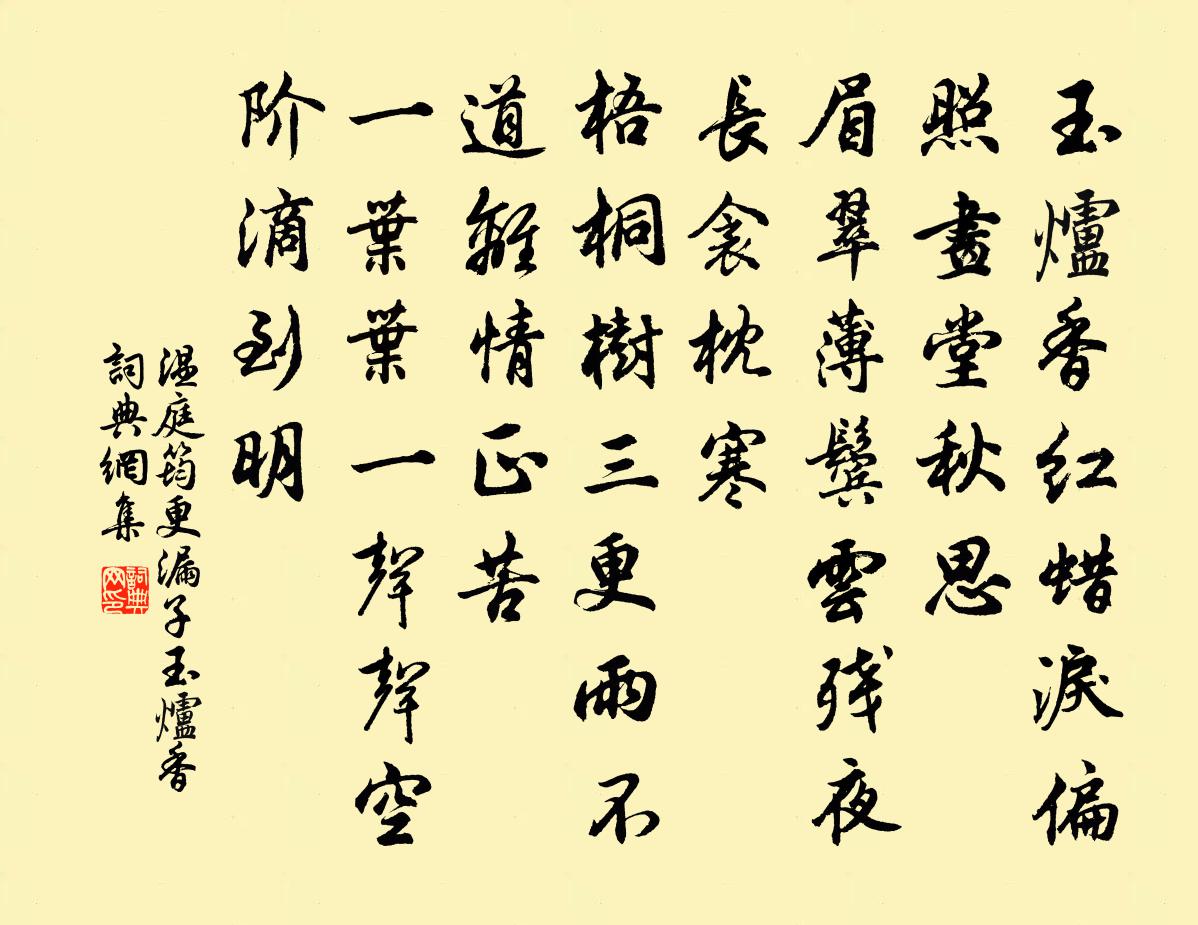 玉爐香红蜡淚偏
照畫堂秋思
眉翠薄鬓雲残夜
長衾枕寒
梧桐樹三更雨不
道離情正苦
一葉葉一聲聲空
阶滴到明
温庭筠更漏子玉爐香
詞典網集
詞典
网印